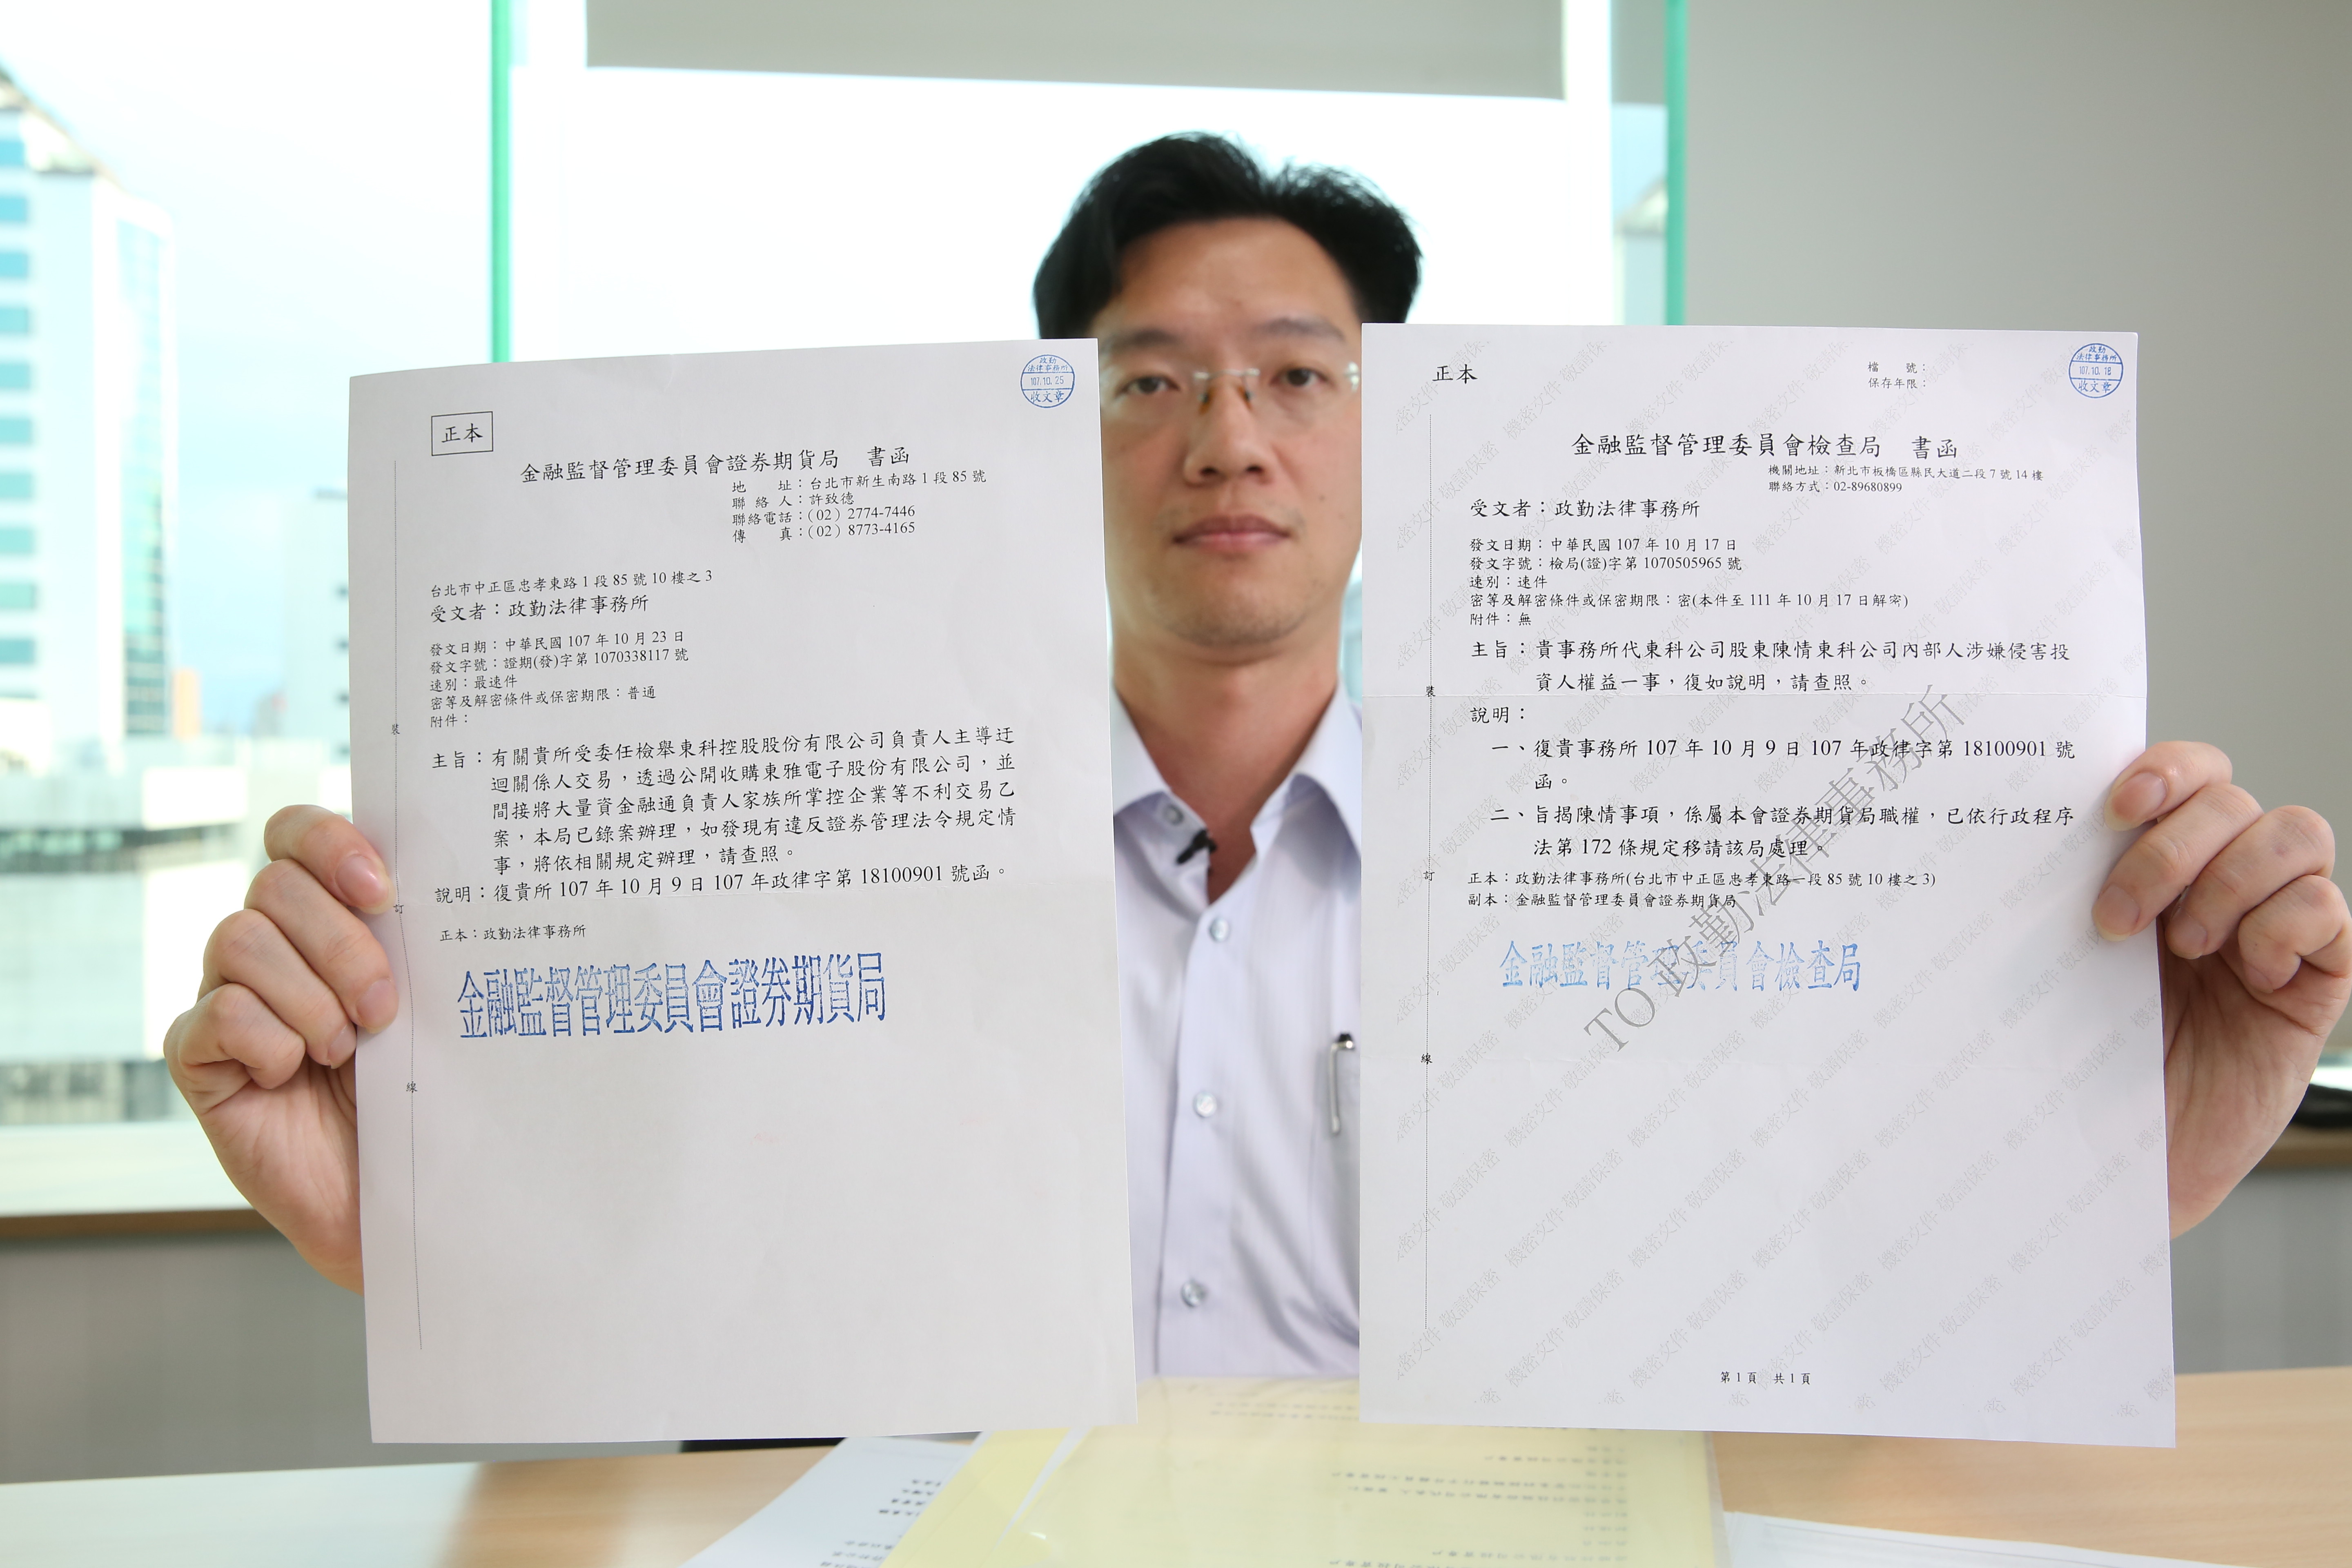 政勤
法律事務所
107.10.25
收文章
正本
金融監督管理委員會證券期貨局 書函
地 址：台北市新生南路1段85號
聯 絡 人：許致德
聯絡電話：(02) 2774-7446
傳 真：(02) 8773-4165
台北市中正區忠孝東路1段85號10樓之3
受文者：政勤法律事務所
發文日期：中華民國107年10月23日
發文字號：證期(發)字第1070338117號
速別：最速件
密等及解密條件或保密期限：普通
附件：
主旨：有關貴所受委任檢舉東科控股股份有限公司負責人主導迂
迴關係人交易，透過公開收購東雅電子股份有限公司，並
間接將大量資金融通負責人家族所掌控企業等不利交易乙
案，本局已錄案辦理，如發現有違反證券管理法令規定情
事，將依相關規定辦理，請查照。
說明：復貴所107年10月9日107年政律字第18100901號函。
正本：政勤法律事務所
金融監督管理委員會證券期貨局
裝
訂
線
政勤
法律事務所
107.10.18
收文章
正本
檔 號：
保存年限：
金融監督管理委員會檢查局 書函
機關地址：新北市板橋區縣民大道二段7號14樓
聯絡方式：02-89680899
受文者：政勤法律事務所
發文日期：中華民國107年10月17日
發文字號：檢局(證)字第1070505965號
速別：速件
密等及解密條件或保密期限：密(本件至111年10月17日解密)
附件：無
主旨：貴事務所代東科公司股東陳情東科公司內部人涉嫌侵害投
資人權益一事，復如說明，請查照。
說明：
一、復貴事務所107年10月9日107年政律字第18100901號
函。
二、旨揭陳情事項，係屬本會證券期貨局職權，已依行政程序
法第172條規定移請該局處理。
正本：政勤法律事務所(台北市中正區忠孝東路一段85號10樓之3)
副本：金融監督管理委員會證券期貨局
金融監督管理委員會檢查局
TO政勤法律事務所
機密文件 敬請保密
裝
訂
線
第1頁 共1頁